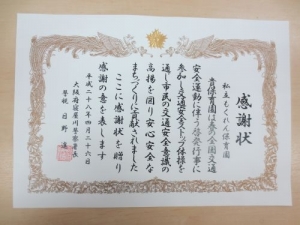 感謝状
私立もくれん保育園
貴保育園は春の全国交通
安全運動に伴う啓発行事に
参加し交通安全
通し市民の交通安全意識の
高揚を図り安心安全な
まちづくりに貢献されました
ここに感謝状を贈り
感謝の意を表します
平成二十八年四月二十六日
大阪府寝屋川警察署長
警視 日野